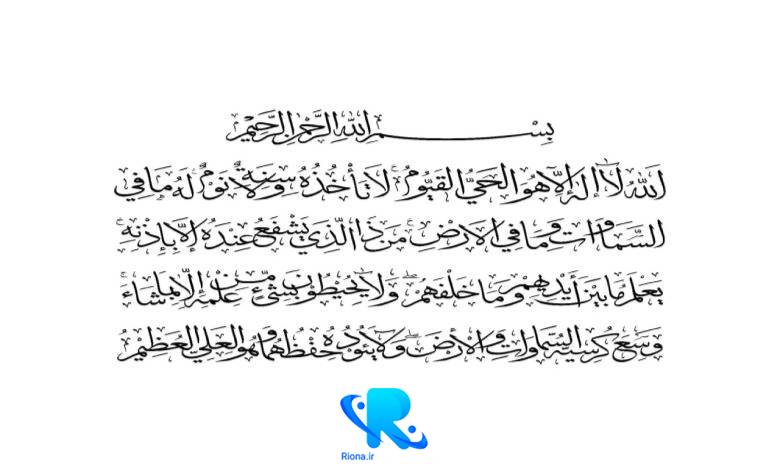 بِسْمِ اللهِ الرَّحْمٰنِ الرَّحِيْمِ
اَللهُ لَآ اِلٰهَ اِلَّا هُوَ الْحَيُّ الْقَيُّوْمُ ۚ لَا تَأْخُذُهٗ سِنَةٌ وَّلَا نَوْمٌ ۚ لَهٗ مَا فِي
السَّمَاوَاتِ وَمَا فِي الْاَرْضِ ۚ مَنْ ذَا الَّذِيْ يَشْفَعُ عِنْدَهٗ اِلَّا بِاِذْنِهٖ ۚ
يَعْلَمُ مَا بَيْنَ اَيْدِيْهِمْ وَمَا خَلْفَهُمْ ۖ وَلَا يُحِيْطُوْنَ بِشَيْءٍ مِّنْ عِلْمِهٖ اِلَّا بِمَا شَاءَ ۚ
وَسِعَ كُرْسِيُّهُ السَّمَاوَاتِ وَالْاَرْضَ ۖ وَلَا يَئُوْدُهٗ حِفْظُهُمَا وَهُوَ الْعَلِيُّ الْعَظِيْمُ
Riona.ir